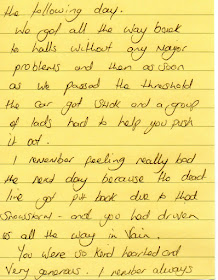 the following day.
We got all the way back
to halls without any major
problems and then as soon
as we passed the threshold
the car got stuck and a group
of lads had to help you push
it out.
I remember feeling really bad
the next day because the dead
line got put back due to that
snowstorm - and you had driven
us all the way in vain.
You were so kind hearted and
very generous. I remember always